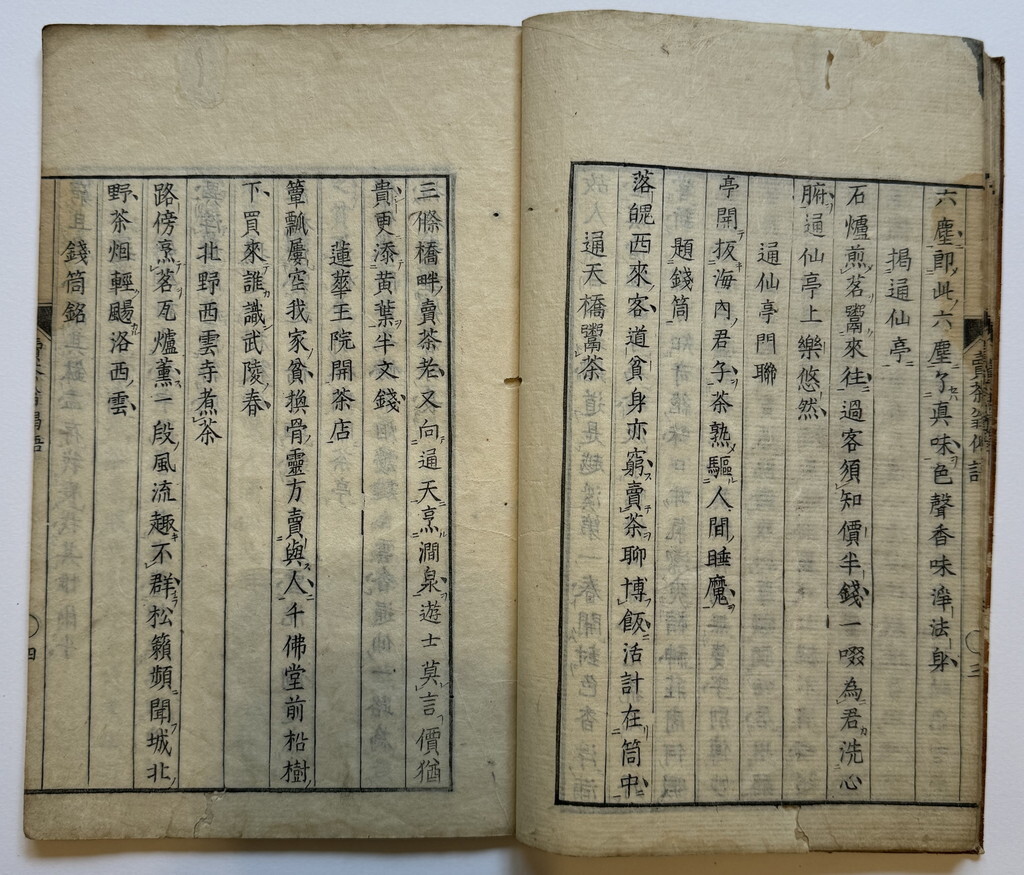 六塵即此六塵了真味色聲香味淨法身
揭通仙亭
石爐煎茗鬻來往過客須知價半錢一啜為君洗心
腑通仙亭上樂悠然
通仙亭門聯
亭開扶海內君子茶熟驅人間睡魔
題錢筒
落魄西來客道貧身亦窮賣茶聊博飯活計在筒中
通天橋鬻茶
三條橋畔賣茶老又向通天烹澗泉遊士莫言價猶
貴更添黃葉半文錢
蓮華王院開茶店
簞瓢屢空我家貧換骨靈方賣與人千佛堂前松樹
下買來誰識武陵春
北野西雲寺煮茶
路傍烹茗瓦爐薰一段風流趣不群松籟頻聞城北
野茶烟輕颺洛西雲
錢筒銘
三
四